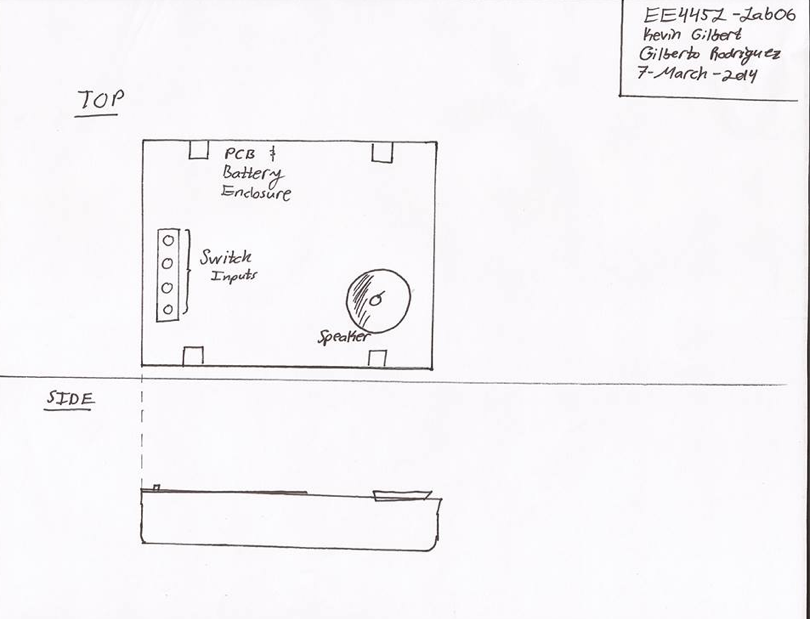 EE445L-Lab06
Kevin Gilbert
Gilberto Rodriguez
7-March-2014
TOP
PCB &
Battery
Enclosure
Switch
Inputs
Speaker
SIDE